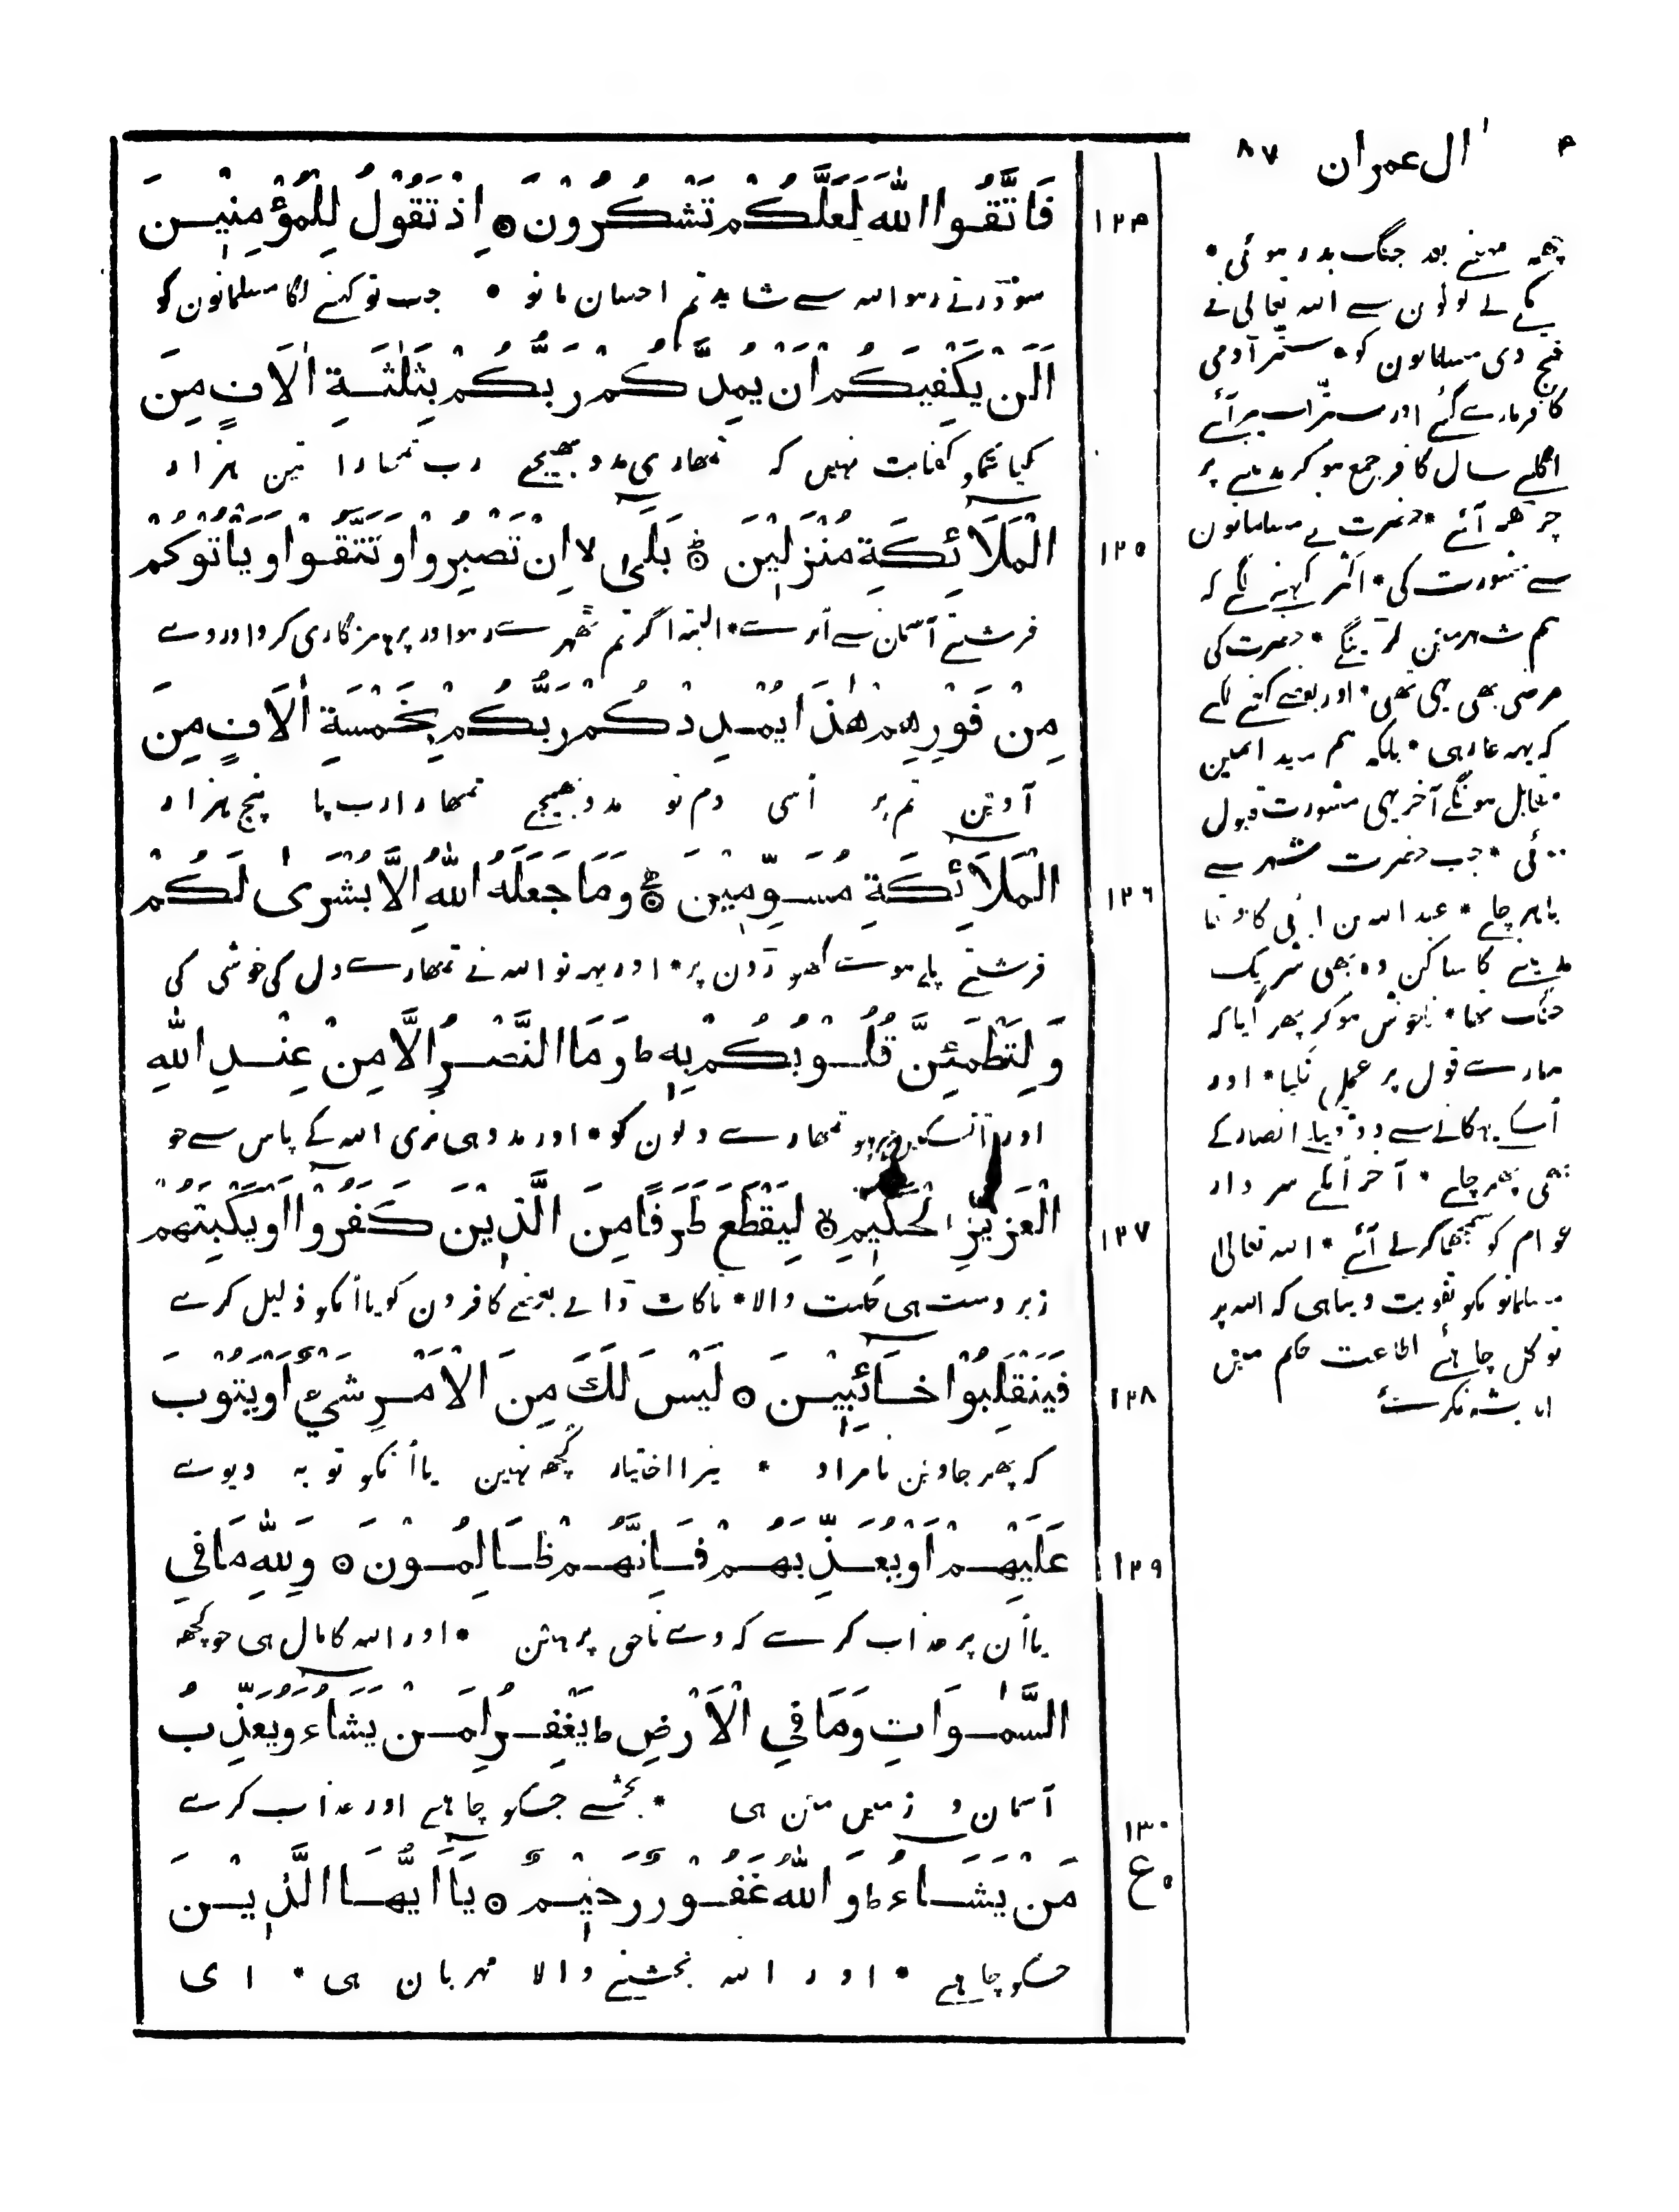 ۴ ال عمران ۸۷
فَاتَّقُوا اللّٰهَ لَعَلَّكُمْ تَشْكُرُونَ ۞ اِذْ تَقُوْلُ لِلْمُؤْمِنِيْنَ
۱۲۴
سو ڈرتے رہو اللہ سے شاید تم احسان مانو * جب تو کہنے لگا مسلمانون کو
اَلَنْ يَكْفِيَكُمْ اَنْ يُمِدَّكُمْ رَبُّكُمْ بِثَلٰثَةِ اٰلَافٍ مِنَ
کیا تمکو کفایت نہیں کہ تمھاری مدد بھیجے رب تمھارا تین ہزار
الْمَلَآئِكَةِ مُنْزَلِيْنَ ۞ بَلٰى لا اِنْ تَصْبِرُوا وَتَتَّقُوا وَيَأْتُوكُمْ
۱۲۵
فرشتے آسمان سے اُترے * البتہ اگر تم ٹھہرے رہو اور پرہیزگاری کرو اور وے
مِنْ فَوْرِهِمْ هٰذَا يُمْدِدْكُمْ رَبُّكُمْ بِخَمْسَةِ اٰلَافٍ مِنَ
آوین تم پر اُسی دم تو مدد بھیجے تمھارا رب پانچ ہزار
الْمَلَآئِكَةِ مُسَوِّمِيْنَ ۞ وَمَا جَعَلَهُ اللّٰهُ اِلَّا بُشْرٰى لَكُمْ
۱۲۶
فرشتے پلے ہوے گھوڑون پر * اور یہہ تو اللہ نے تمھارے دل کی خوشی کی
وَلِتَطْمَئِنَّ قُلُوْبُكُمْ بِهٖ ط وَمَا النَّصْرُ اِلَّا مِنْ عِنْدِ اللّٰهِ
اور تا تسکین ہو تمھارے دلون کو * اور مدد ہی نری اللہ کے پاس سے جو
الْعَزِيْزِ الْحَكِيْمِ ۞ لِيَقْطَعَ طَرَفًا مِنَ الَّذِيْنَ كَفَرُوْا اَوْ يَكْبِتَهُمْ
۱۲۷
زبردست ہی حکمت والا * تا کاٹ ڈالے بعضے کافرون کو یا اُنکو ذلیل کرے
فَيَنْقَلِبُوْا خَآئِبِيْنَ ۞ لَيْسَ لَكَ مِنَ الْاَمْرِ شَيْءٌ اَوْ يَتُوْبَ
۱۲۸
کہ پھر جاوین نامراد * تیرا اختیار کچھ نہین یا اُنکو توبہ دیوے
عَلَيْهِمْ اَوْ يُعَذِّبَهُمْ فَاِنَّهُمْ ظَالِمُوْنَ ۞ وَلِلّٰهِ مَا فِي
۱۲۹
یا اُن پر عذاب کرے کہ وے ناحق پر ہین * اور اللہ کا مال ہی جو کچھ
السَّمٰوَاتِ وَمَا فِي الْاَرْضِ ط يَغْفِرُ لِمَنْ يَشَاءُ وَيُعَذِّبُ
آسمان و زمین مین ہی * بخشے جسکو چاہے اور عذاب کرے
۱۳۰
مَنْ يَشَاءُ ط وَاللّٰهُ غَفُوْرٌ رَحِيْمٌ ۞ يَا اَيُّهَا الَّذِيْنَ
ع ۵
جسکو چاہے * اور اللہ بخشنے والا مہربان ہی * ای
بعد جنگ بدر ہوئی *
سے اللہ تعالی نے
فتح دی مسلمانون کو * ستّر آدمی
کافر مارے گئے اور ستّر اسیر آئے
اگلے سال کافر جمع ہو کر مدینے پر
چڑھہ آئے * حضرت نے مسلمانون
سے مشورت کی * اکثر کہنے لگے کہ
ہم شہر مین لڑینگے * حضرت کی
مرضی بھی یہی تھی * اور بعضے کہنے لگے
کہ یہہ عار ہی * بلکہ ہم
مقابل ہونگے آخر یہی مشورت قبول
ہوئی * جب حضرت شہر سے
باہر چلے * عبد اللہ بن ابی کا
مدینے کا ساکن وہ بھی شریک
جنگ تھا * ناخوش ہو کر پھر گیا کہ
ہمارے قول پر عمل نکیا * اور
اُسکے بہکانے سے دو قبیلے انصار کے
بھی پھر چلے * آخر اُنکے سردار
عوام کو سمجھا کر لے آئے * اللہ تعالی
مسلمانونکو تقویت دیتا ہی کہ اللہ پر
توکل چاہئے اطاعت حکم میں
اندیشہ نکرے